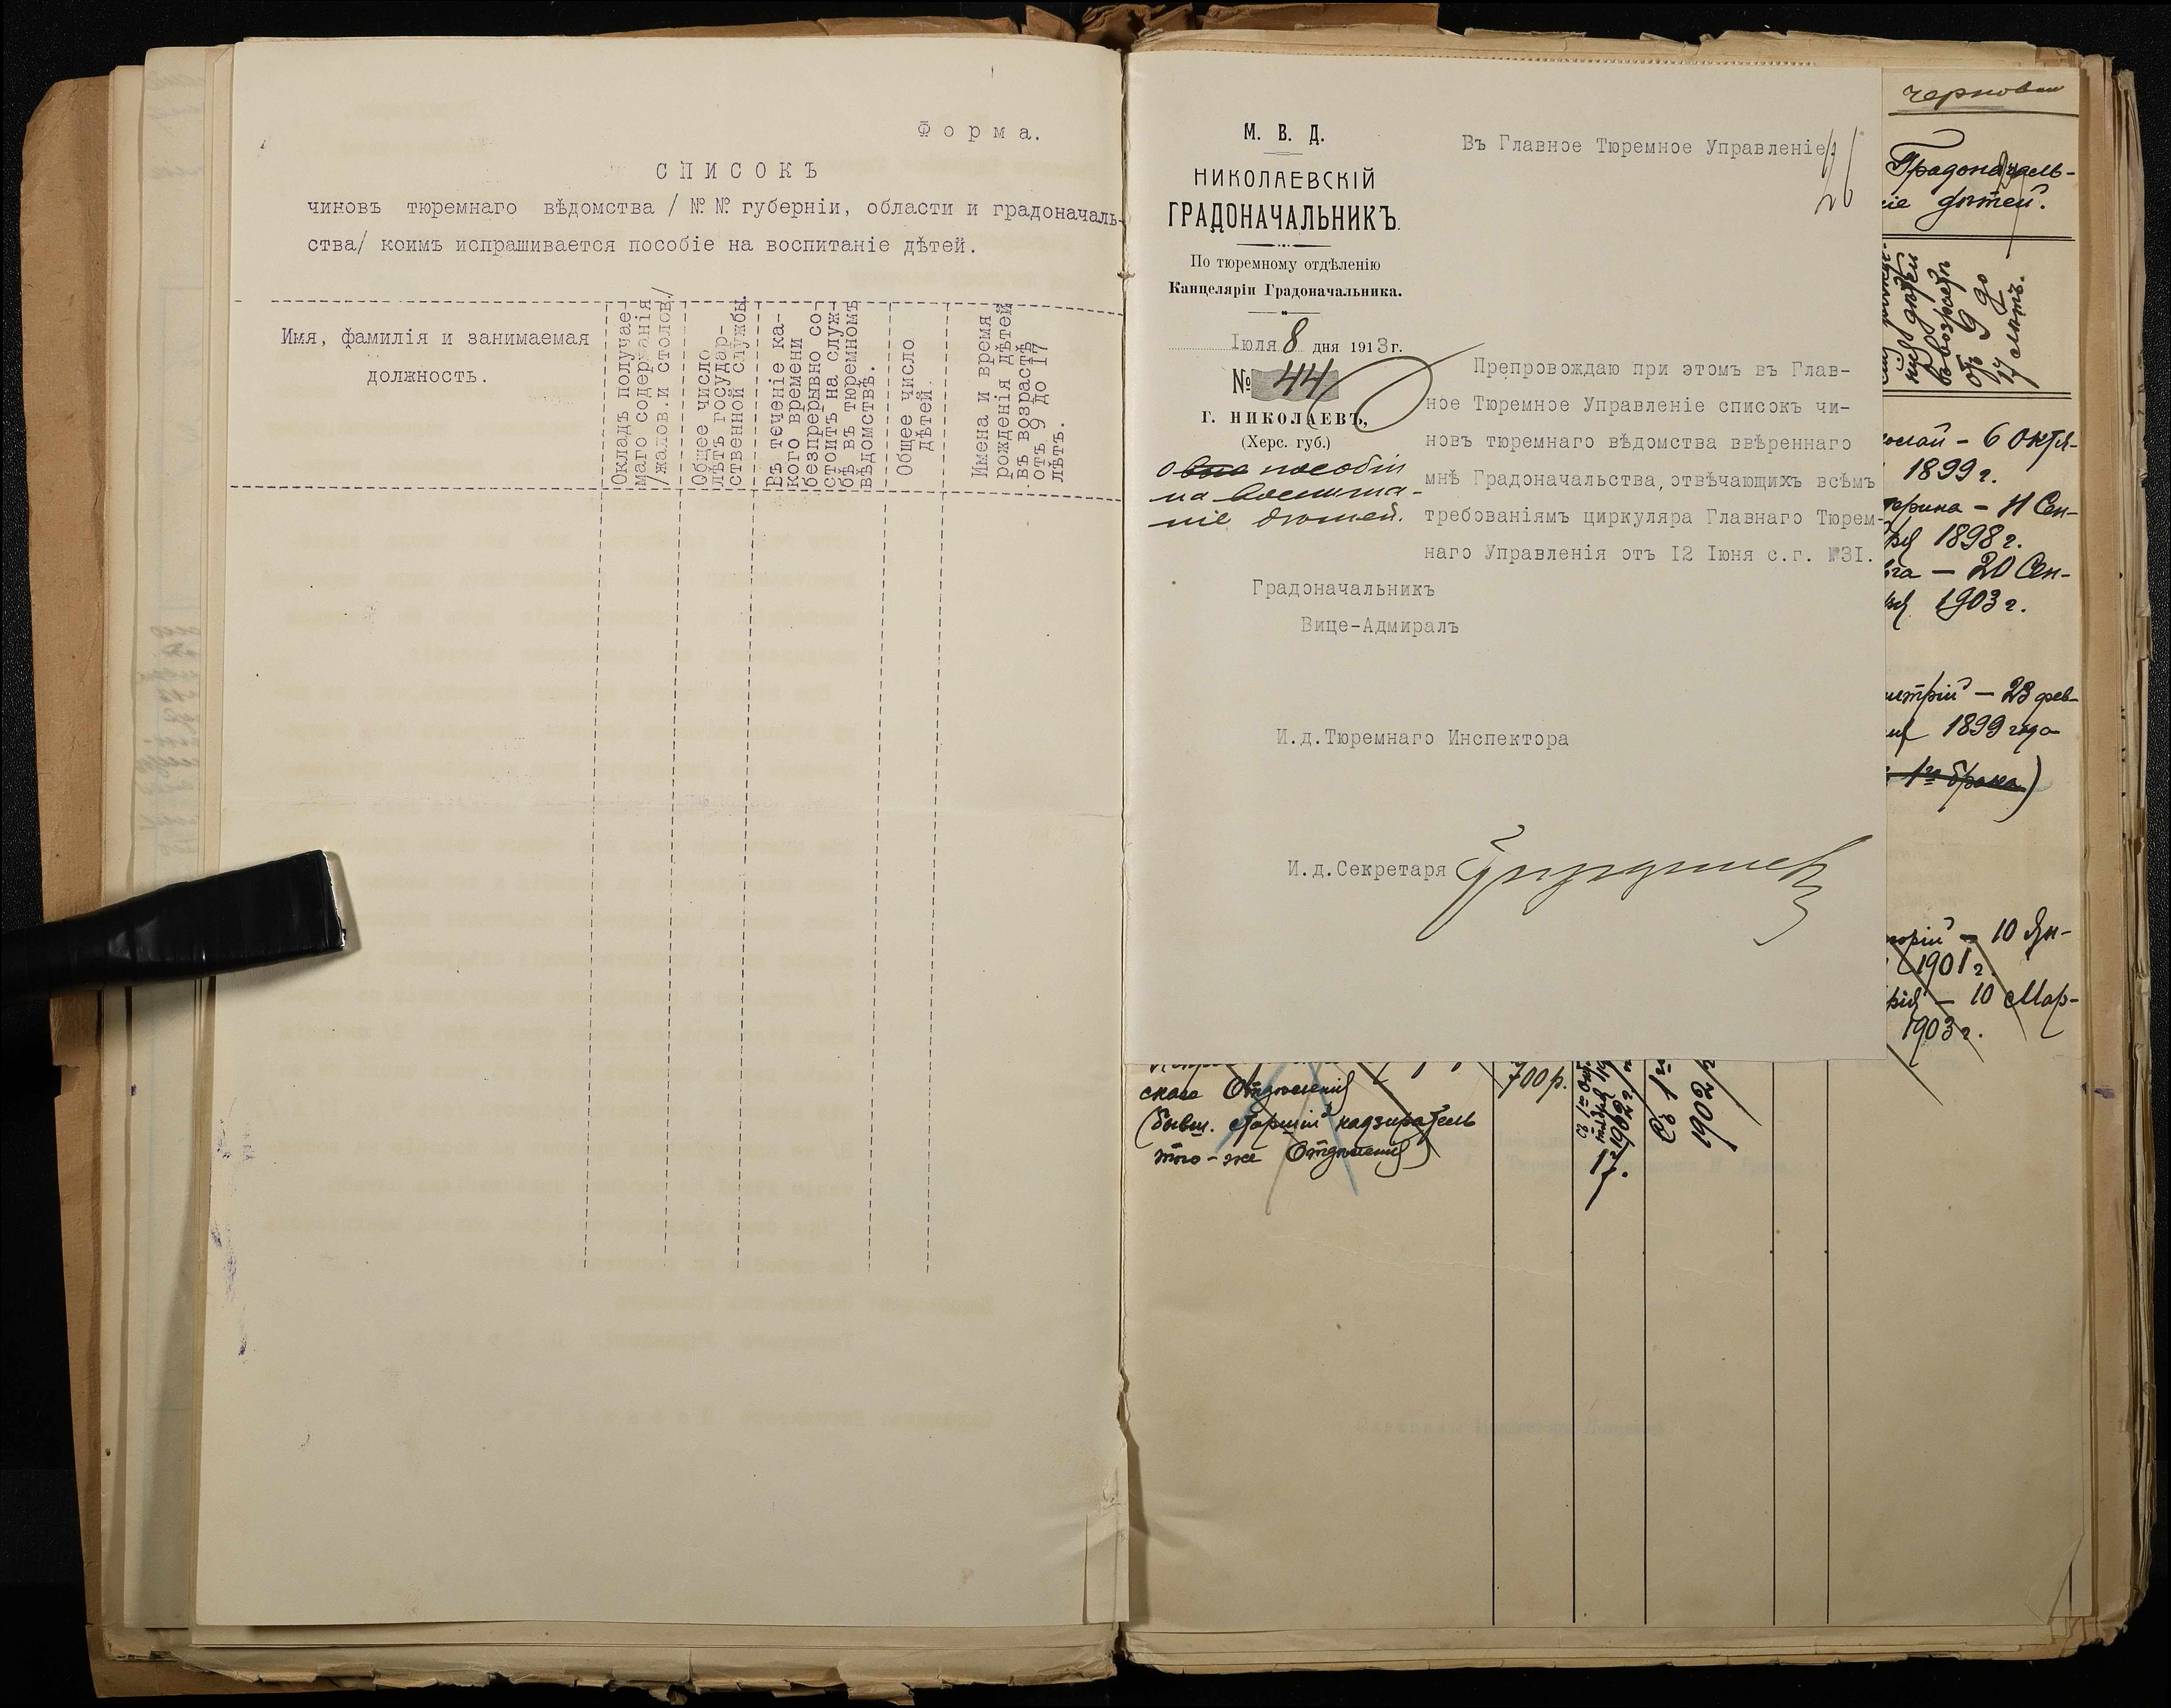 Форма.
СПИСОКЪ
чиновъ тюремнаго вѣдомства / №№ губерніи, области и градоначаль-
ства/ коимъ испрашивается пособіе на воспитаніе дѣтей.
Имя, фамилія и занимаемая
должность.
Окладъ получае-
маго содержанія
/жалов. и столов./
Общее число
лѣтъ государ-
ственной службы.
Въ теченіе ка-
кого времени
безпрерывно со-
стоитъ на служ-
бѣ въ тюремномъ
вѣдомствѣ.
Общее число
дѣтей.
Имена и время
рожденія дѣтей
въ возрастѣ
отъ 9 до 17
лѣтъ.
М. В. Д.
НИКОЛАЕВСКІЙ
ГРАДОНАЧАЛЬНИКЪ.
По тюремному отдѣленію
Канцеляріи Градоначальника.
Іюля 8 дня 1913 г.
№ 44
Г. НИКОЛАЕВЪ,
(Херс. губ.)
о пособіи
на воспита-
ніе дѣтей.
Въ Главное Тюремное Управленіе
Препровождаю при этомъ въ Глав-
ное Тюремное Управленіе списокъ чи-
новъ тюремнаго вѣдомства ввѣреннаго
мнѣ Градоначальства, отвѣчающихъ всѣмъ
требованіямъ циркуляра Главнаго Тюрем-
наго Управленія отъ I2 Іюня с.г. №3I.
Градоначальникъ
Вице-Адмиралъ
И.д.Тюремнаго Инспектора
И.д.Секретаря
Градоначаль-
ніе дѣтей.
въ возрастѣ
отъ 9 до
17 лѣтъ.
– 6 Октя-
1899 г.
– 11 Сен-
1898 г.
– 20 Сен-
1903 г.
– 23 фев-
1899 года
1го брака)
– 10 Ян-
1901 г.
– 10 Мар-
1903 г.
скаго Отдѣленія
(бывш. старшій надзиратель
того-же Отдѣленія)
700 р.
Съ 1го
1902